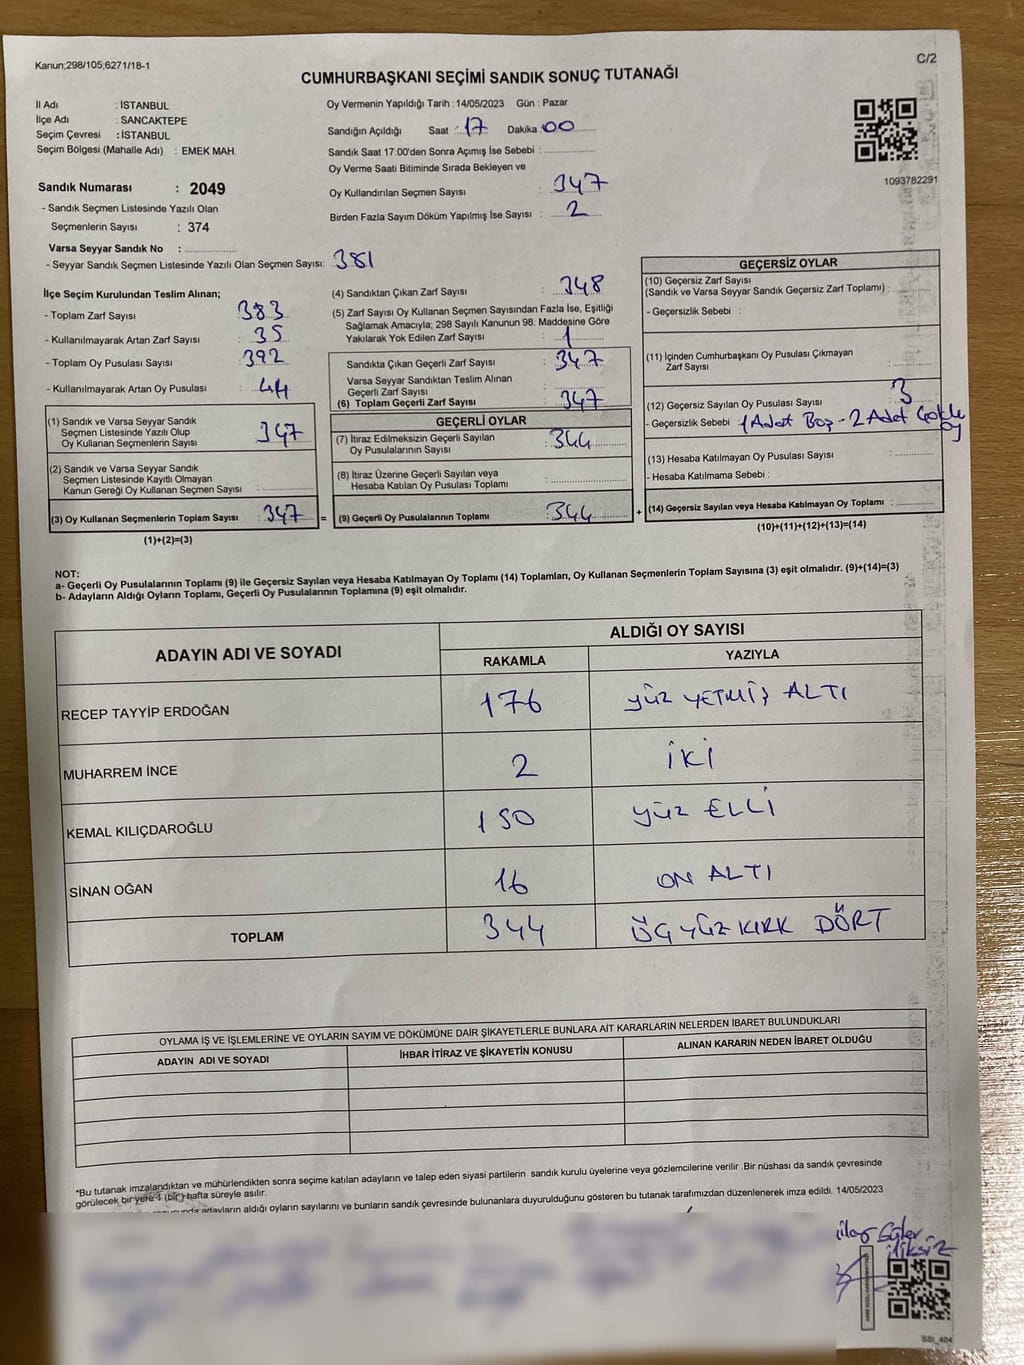 Kanun;298/105;6271/18-1
C/2
CUMHURBAŞKANI SEÇİMİ SANDIK SONUÇ TUTANAĞI
İl Adı : İSTANBUL
İlçe Adı : SANCAKTEPE
Seçim Çevresi : İSTANBUL
Seçim Bölgesi (Mahalle Adı) : EMEK MAH.
Sandık Numarası : 2049
- Sandık Seçmen Listesinde Yazılı Olan
Seçmenlerin Sayısı : 374
Varsa Seyyar Sandık No :
- Seyyar Sandık Seçmen Listesinde Yazılı Olan Seçmen Sayısı: 381
Oy Vermenin Yapıldığı Tarih : 14/05/2023 Gün : Pazar
Sandığın Açıldığı Saat : 17 Dakika : 00
Sandık Saat 17:00'den Sonra Açımış İse Sebebi :
Oy Verme Saati Bitiminde Sırada Bekleyen ve
Oy Kullandırılan Seçmen Sayısı : 347
Birden Fazla Sayım Döküm Yapılmış İse Sayısı : 2
1093782291
İlçe Seçim Kurulundan Teslim Alınan;
- Toplam Zarf Sayısı : 383
- Kullanılmayarak Artan Zarf Sayısı : 35
- Toplam Oy Pusulası Sayısı : 392
- Kullanılmayarak Artan Oy Pusulası : 44
(1) Sandık ve Varsa Seyyar Sandık
Seçmen Listesinde Yazılı Olup
Oy Kullanan Seçmenlerin Sayısı : 347
(2) Sandık ve Varsa Seyyar Sandık
Seçmen Listesinde Kayıtlı Olmayan
Kanun Gereği Oy Kullanan Seçmen Sayısı :
(3) Oy Kullanan Seçmenlerin Toplam Sayısı : 347 =
(1)+(2)=(3)
(4) Sandıktan Çıkan Zarf Sayısı : 348
(5) Zarf Sayısı Oy Kullanan Seçmen Sayısından Fazla İse, Eşitliği
Sağlamak Amacıyla; 298 Sayılı Kanunun 98. Maddesine Göre
Yakılarak Yok Edilen Zarf Sayısı : 1
Sandıkta Çıkan Geçerli Zarf Sayısı : 347
Varsa Seyyar Sandıktan Teslim Alınan
Geçerli Zarf Sayısı
(6) Toplam Geçerli Zarf Sayısı : 347
GEÇERLİ OYLAR
(7) İtiraz Edilmeksizin Geçerli Sayılan
Oy Pusulasının Sayısı : 344
(8) İtiraz Üzerine Geçerli Sayılan veya
Hesaba Katılan Oy Pusulası Toplamı :
(9) Geçerli Oy Pusulalarının Toplamı : 344 +
GEÇERSİZ OYLAR
(10) Geçersiz Zarf Sayısı
(Sandık ve Varsa Seyyar Sandık Geçersiz Zarf Toplamı) :
- Geçersizlik Sebebi :
(11) İçinden Cumhurbaşkanı Oy Pusulası Çıkmayan
Zarf Sayısı :
(12) Geçersiz Sayılan Oy Pusulası Sayısı : 3
- Geçersizlik Sebebi : 1 Adet Boş - 2 Adet Çoklu
oy
(13) Hesaba Katılmayan Oy Pusulası Sayısı :
- Hesaba Katılmama Sebebi :
(14) Geçersiz Sayılan veya Hesaba Katılmayan Oy Toplamı :
(10)+(11)+(12)+(13)=(14)
NOT:
a- Geçerli Oy Pusulalarının Toplamı (9) ile Geçersiz Sayılan veya Hesaba Katılmayan Oy Toplamı (14) Toplamları, Oy Kullanan Seçmenlerin Toplam Sayısına (3) eşit olmalıdır. (9)+(14)=(3)
b- Adayların Aldığı Oyların Toplamı, Geçerli Oy Pusulalarının Toplamına (9) eşit olmalıdır.
ADAYIN ADI VE SOYADI ALDIĞI OY SAYISI
RAKAMLA YAZIYLA
RECEP TAYYİP ERDOĞAN 176 YÜZ YETMİŞ ALTI
MUHARREM İNCE 2 İKİ
KEMAL KILIÇDAROĞLU 150 YÜZ ELLİ
SİNAN OĞAN 16 ON ALTI
TOPLAM 344 ÜÇ YÜZ KIRK DÖRT
OYLAMA İŞ VE İŞLEMLERİNE VE OYLARIN SAYIM VE DÖKÜMÜNE DAİR ŞİKAYETLERLE BUNLARA AİT KARARLARIN NELERDEN İBARET BULUNDUKLARI
ADAYIN ADI VE SOYADI İHBAR İTİRAZ VE ŞİKAYETİN KONUSU ALINAN KARARIN NEDEN İBARET OLDUĞU
*Bu tutanak imzalandıktan ve mühürlendikten sonra seçime katılan adayların ve talep eden siyasi partilerin sandık kurulu üyelerine veya gözlemcilerine verilir .Bir nüshası da sandık çevresinde
görülecek bir yere 1 (bir) hafta süreyle asılır.
adayların aldığı oyların sayılarını ve bunların sandık çevresinde bulunanlara duyurulduğunu gösteren bu tutanak tarafımızdan düzenlenerek imza edildi. 14/05/2023